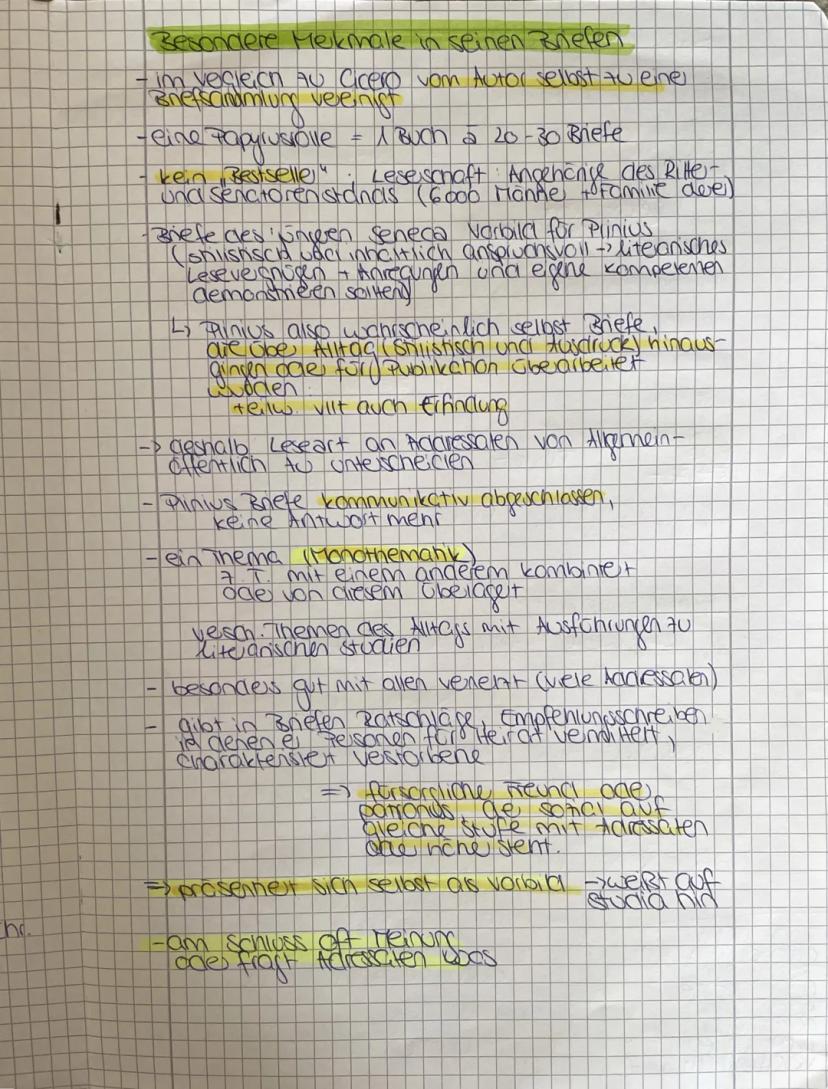 Besondere Merkmale in seinen Briefen
- im Vergleich zu Cicero vom Autor selbst zu einer
Briefsammlung vereinigt
- eine Papyrusrolle = 1 Buch à 20-30 Briefe
- kein "Bestseller" : Leserschaft: Angehörige des Ritter-
und Senatorenstands (6000 Männer + Familie derer)
- Briefe des jüngeren Seneca Vorbild für Plinius
(stilistisch und inhaltlich anspruchsvoll -> literarisches
Lesevergnügen + Anregungen und eigene Kompetenzen
demonstrieren sollten)
↳ Plinius also wahrscheinlich selbst Briefe,
die über Alltag (stilistisch und Ausdruck) hinaus-
gingen oder für Publikation überarbeitet
wurden
teilw. vllt auch Erfindung
-> deshalb Leseart an Addressaten von Allgemein-
öffentlich zu unterscheiden
- Plinius Briefe kommunikativ abgeschlossen,
keine Antwort mehr
- ein Thema (Monothematik)
z. T. mit einem anderem kombiniert
oder von diesem überlagert
versch. Themen des Alltags mit Ausführungen zu
literarischen Studien
- besonders gut mit allen vernetzt (viele Addressaten)
- gibt in Briefen Ratschläge, Empfehlungsschreiben
in denen er Personen für Heirat vermittelt,
charakterisiert Verstorbene
=> fürsorgliche Freund oder
patronus der sozial auf
gleiche Stufe mit Adressaten
oder höher steht.
=> präsentiert sich selbst als Vorbild -> weißt auf
studia hin
- am Schluss oft Meinung
oder fragt Adressaten was
hr.